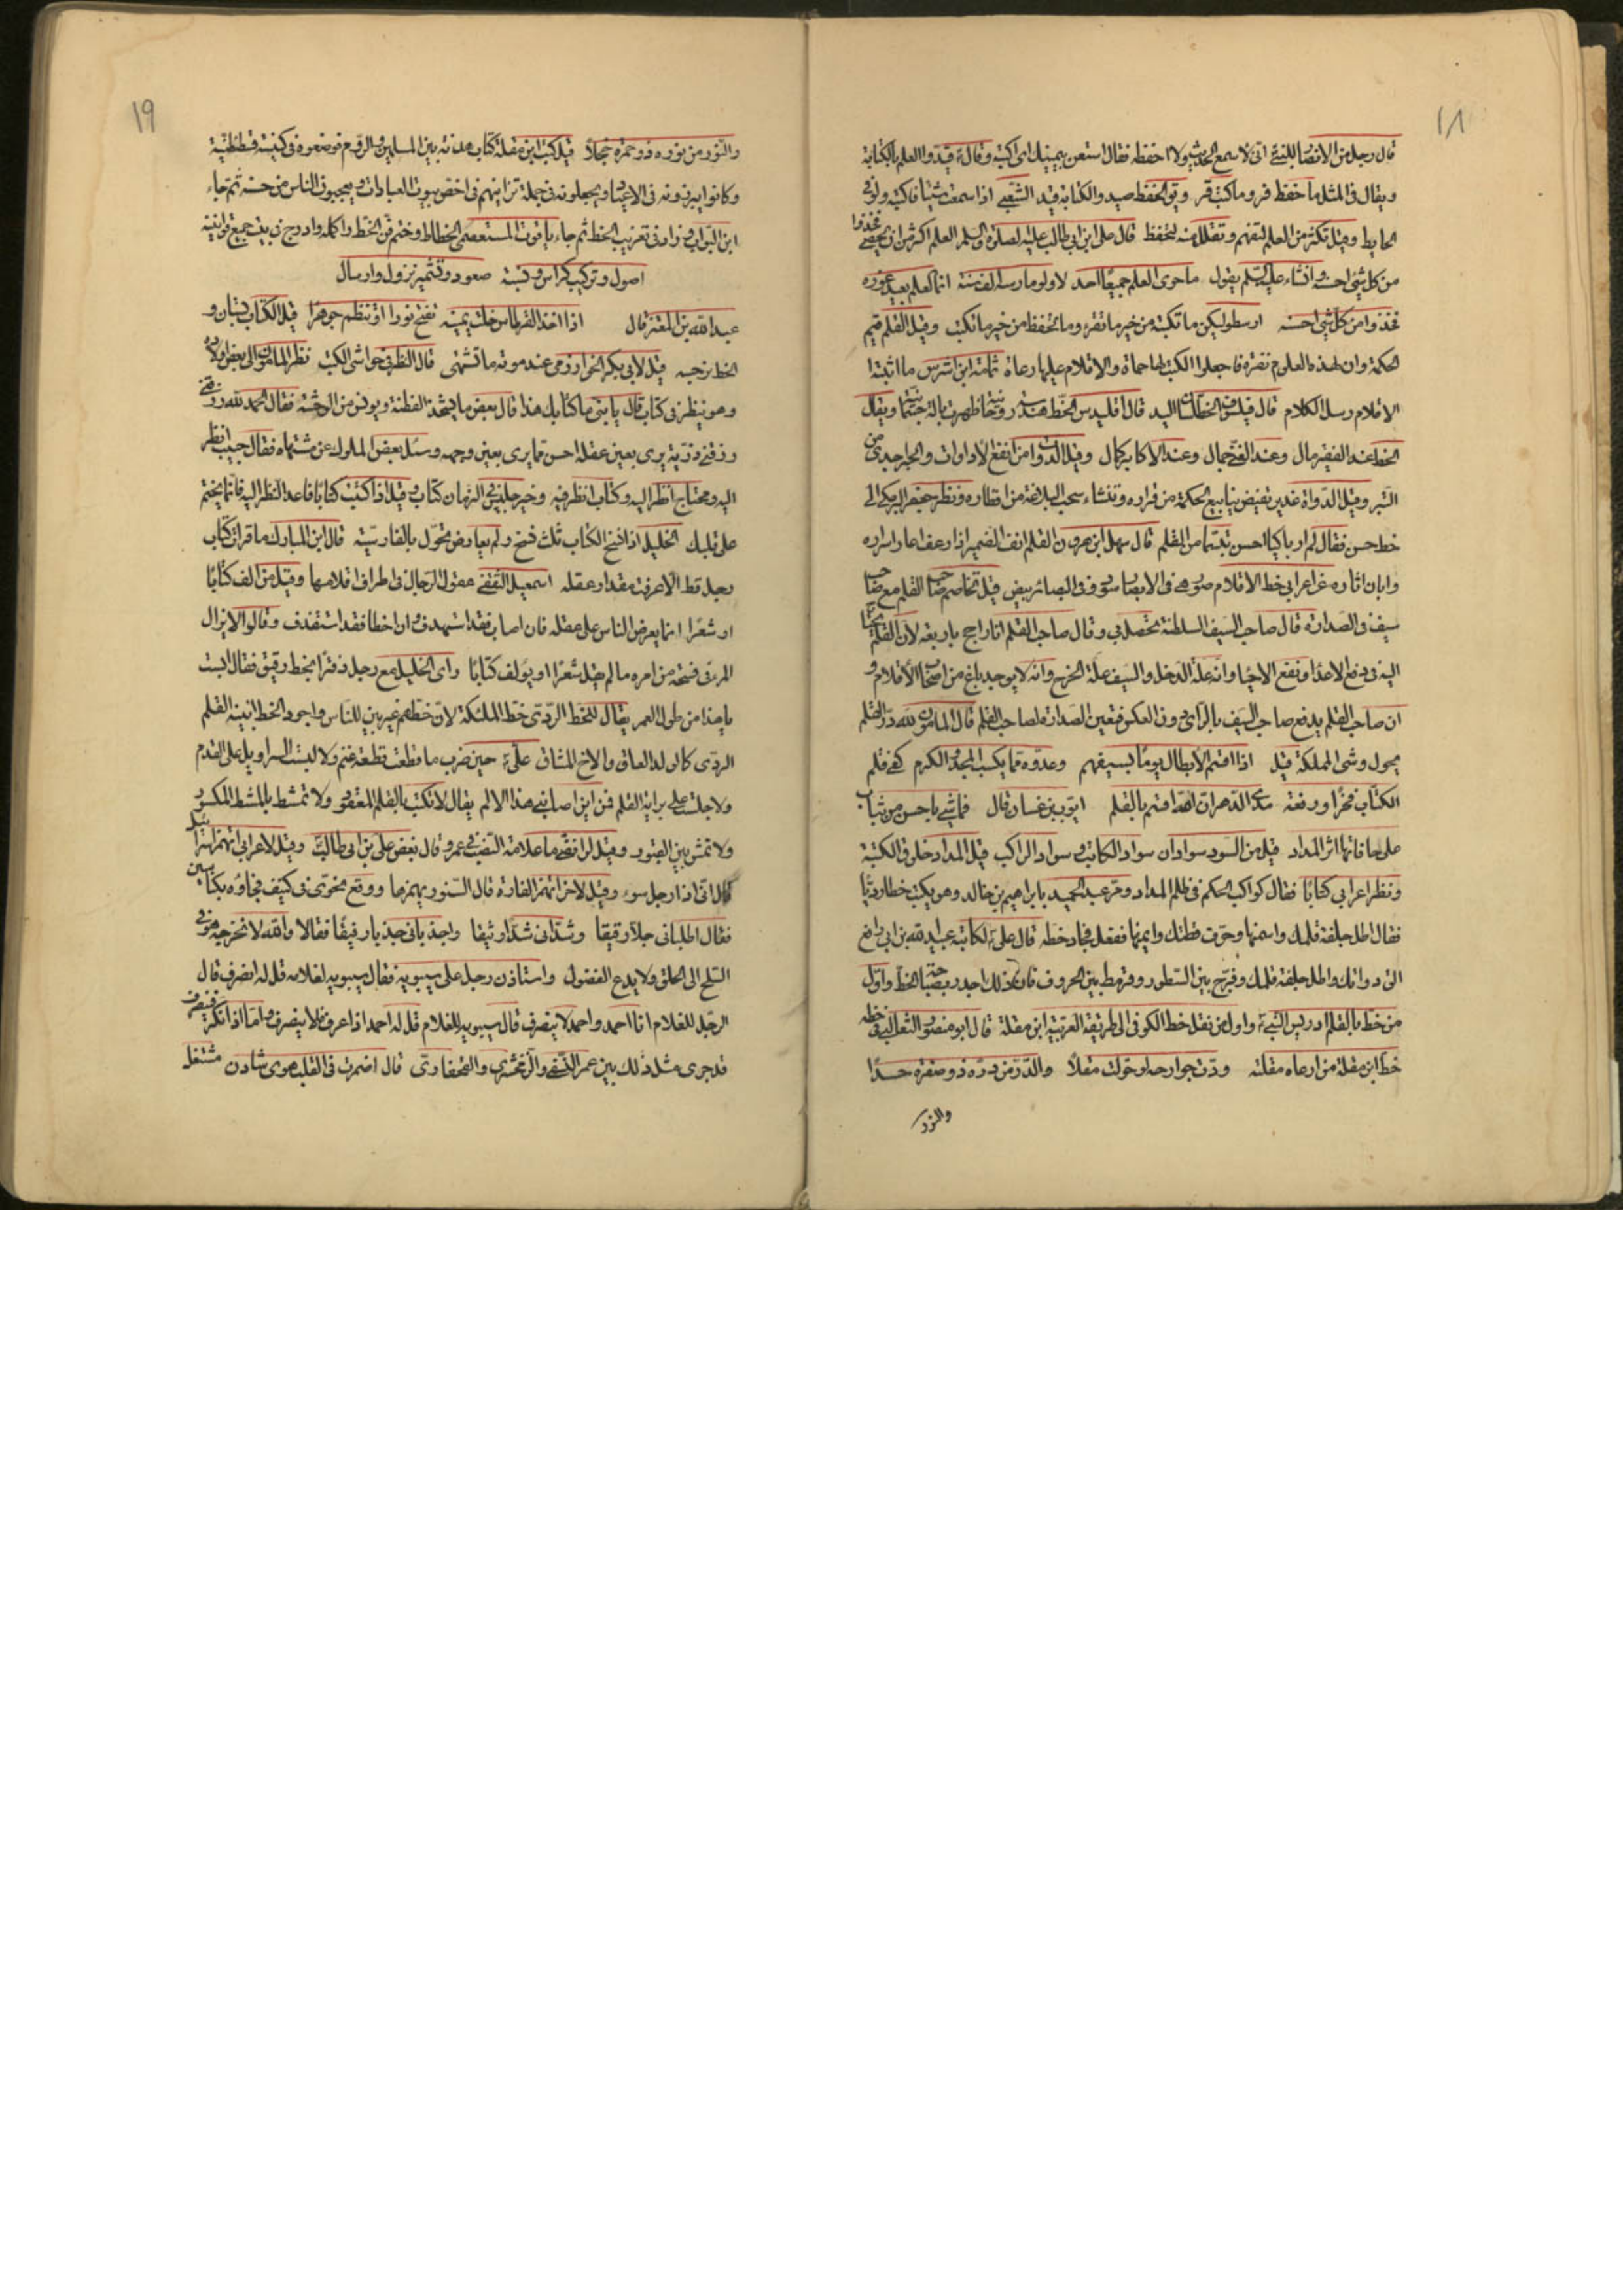 ١٨
قال رجل من الانصار للنبى انى لاسمع الحديث ولا احفظه فقال استعن بيمينك اى اكتبه وقال قيدوا العلم بالكتابة
ويقال فى المثل ما حفظ فر وما كتب قر الحفظ صيد والكتابة قيد الشعبى اذا سمعت شيئا فاكتبه ولو فى
الحايط وقيل تكثر من العلم لتفهم وتقلل منه لتحفظ قال على ابن ابى طالب عليه الصلوة والسلم العلم اكثر من ان يحصى فخذوا
من كل شئ احسنه وانشاء عليه السلم يقول ما حوى العلم جميعا احد لا ولو مارسه الف سنة انما العلم بعيد غوره
فخذوا من كل شئ احسنه ارسطو ليكن ما تكتبه من خير ما تقرء وما تحفظ من خير ما تكتب وقيل القلم قيم
الحكمة وان لهذه العلوم نفرة فاجعلوا الكتب لها حماة والاقلام عليها رعاة ثمامة ابن اشرس ما اثبته
الاقلام رسل الكلام قال فيلسوف الخط لسان اليد قال اقليدس الخط هندسة روحانية ظهرت بالة جسمانية ويقال
الخط عند الفقير مال وعند الغنى جمال وعند الاكابر كمال وقيل الدواة من انفع الادوات والحبر اجدى من
التبر وقيل الدواة غدير تفيض ينابيع الحكمة من قراره وتنشاء سحب البلاغة من اقطاره ونظر جعفر البرمكى الى
خط حسن فقال لم ار باكيا احسن تبسما من القلم قال سهل ابن هرون القلم انف الضمير اذا رعف اعلن اسراره
وابان اثاره اعرابى خط الاقلام صور هى فى الابصار سود وفى البصائر بيض قيل تخاصم صاحب القلم مع صاحب
سيف فى الصدارة قال صاحب السيف السلطنة تحصل بى وقال صاحب القلم انا راجح باربعة لان القلم
اليه فى دفع الاعداء ونفع الاحباء وانه علة الدخل والسيف علة الخرج وانه لا يوجد باغ من اصحاب الاقلام و
ان صاحب القلم يدفع صاحب السيف بالراى دون العكس فتعين الصدارة لصاحب القلم قال المامون لله در القلم
يحول وشى المملكة قيل اذا اقسم الابطال يوما بسيفهم وعدوه مما يكسب المجد والكرم كفى قلم
الكتاب فخرا ورفعة مدى الدهر ان الله اقسم بالقلم ايوب بن غسان قال فما شئ باحسن من ثياب
على حافاتها اثر المداد قيل من السود سوادان سواد الكاتب وسواد الراكب قيل المداد خلوق الكتبة
ونظر اعرابى كتابا فقال كواكب الحكم فى ظلم المداد ومر عبد الحميد بابراهيم بن خالد وهو يكتب خطا رديا
فقال اطل جلفة قلمك واسمنها وحرف قطتك وايمنها ففعل فجاد خطه قال على لكاتبه عبيد الله بن ابى رافع
الق دواتك واطل جلفة قلمك وفرج بين السطور وقرمط بين الحروف فان ذلك اجدر بصباحة الخط واول
من خط بالقلم ادريس النبى واول من نقل خط الكوفى الى طريقة العربية ابن مقلة قال ابو منصور الثعالبى فى خطه
خط ابن مقلة من ارعاه مقلته ودت جوارحه لو حولت مقلا والدر من دره ذو صفرة حسدا
والنور
١٩
والنور من نوره ذو حمرة خجلا قيل كتب ابن مقلة كتاب هدنة بين المسلمين والروم فوضعوه فى كنيسة قسطنطنية
وكانوا يبرزونه فى الاعياد ويجعلونه فى جملة تزايينهم فى اخص بيوت العبادات ويعجبون الناس من حسنه ثم جاء
ابن البواب وزاد فى تعريب الخط ثم جاء ياقوت المستعصمى الخطاط وختم فن الخط واكمله وادرج فى بيت جميع قوانينه
اصول وتركيب كراس ونسبة صعود وتشمير نزول وارسال
عبد الله بن المعتز قال اذا اخذ القرطاس خلت يمينه تفتح نورا او تنظم جوهرا قيل الكتاب بستان و
الخط نرجسه قيل لابى بكر الخوارزمى عند موته ما تشتهى قال النظر فى حواشى الكتب نظر المامون الى بعض ولاده
وهو ينظر فى كتاب قال يا بنى ما كتابك هذا قال بعض ما يشحذ الفطنة ويونس من الوحشة فقال الحمد لله رزقنى
رزقنى ذرية يرى بعين عقله احسن مما يرى بعين وجهه وسئل بعض الملوك عن مشتهاه فقال حبيب انظر
اليه ومحتاج انظر اليه وكتاب انظر فيه وخير جليس فى الزمان كتاب وقيل اذا كتبت كتابا فاعد النظر اليه فانما يختم
على عقلك الخليل اذا نسخ الكتاب ثلث نسخ ولم يعارض تحول بالفارسية قال ابن المبارك ما قرات كتاب
رجل قط الا عرفت مقدار عقله اسمعيل الثقفى عقول الرجال فى اطراف اقلامها وقيل من الف كتابا
او شعرا انما يعرض الناس على عقله فان اصاب فقد استهدف وان اخطا فقد استقذف وقالوا لا يزال
المرء فى فسحة من امره ما لم يقل شعرا او يولف كتابا راى الخليل مع رجل دفترا بخط رقيق فقال ايست
يا هذا من طول العمر يقال للخط الردى خط الملئكة لان خطهم غير بين للناس واجود الخط ابينه القلم
الردى كالولد العاق والاخ المشاق على حين ضرب ما قطعت قطعة غنم ولا لبست السراويل على القدم
ولا جلست على براية القلم فمن اين اصابنى هذا الالم يقال لا تكتب بالقلم المعقود ولا تمشط بالمشط المكسور
ولا تمش بين القبور وقيل لرافضى ما علامة النصب فى عمر قال بغض على بن ابى طالب وقيل لاعرابى اتهمز اسرائيل
قال انى اذا رجل سوء وقيل لاخر اتهمز الفارة قال السنور يهمزها ووقع نحوى فى كنيف فجاؤه بكناسين
فقال اطلبا لى حبلا رقيقا وشدانى شدا وثيقا واجذبانى جذبا رفيقا فقالا والله لا نخرجه هو فى
السلح الى الحلق ولا يدع الفضول واستاذن رجل على سيبويه فقال سيبويه لغلامه قل له انصرف قال
الرجل للغلام انا احمد واحمد لا ينصرف قال سيبويه للغلام قل له احمد اذا عرف لا ينصرف واما اذا نكر فينصرف
قد جرى مثل ذلك بين عمر النسفى والزمخشرى قال اضمرت فى القلب هوى شادن مشتغل